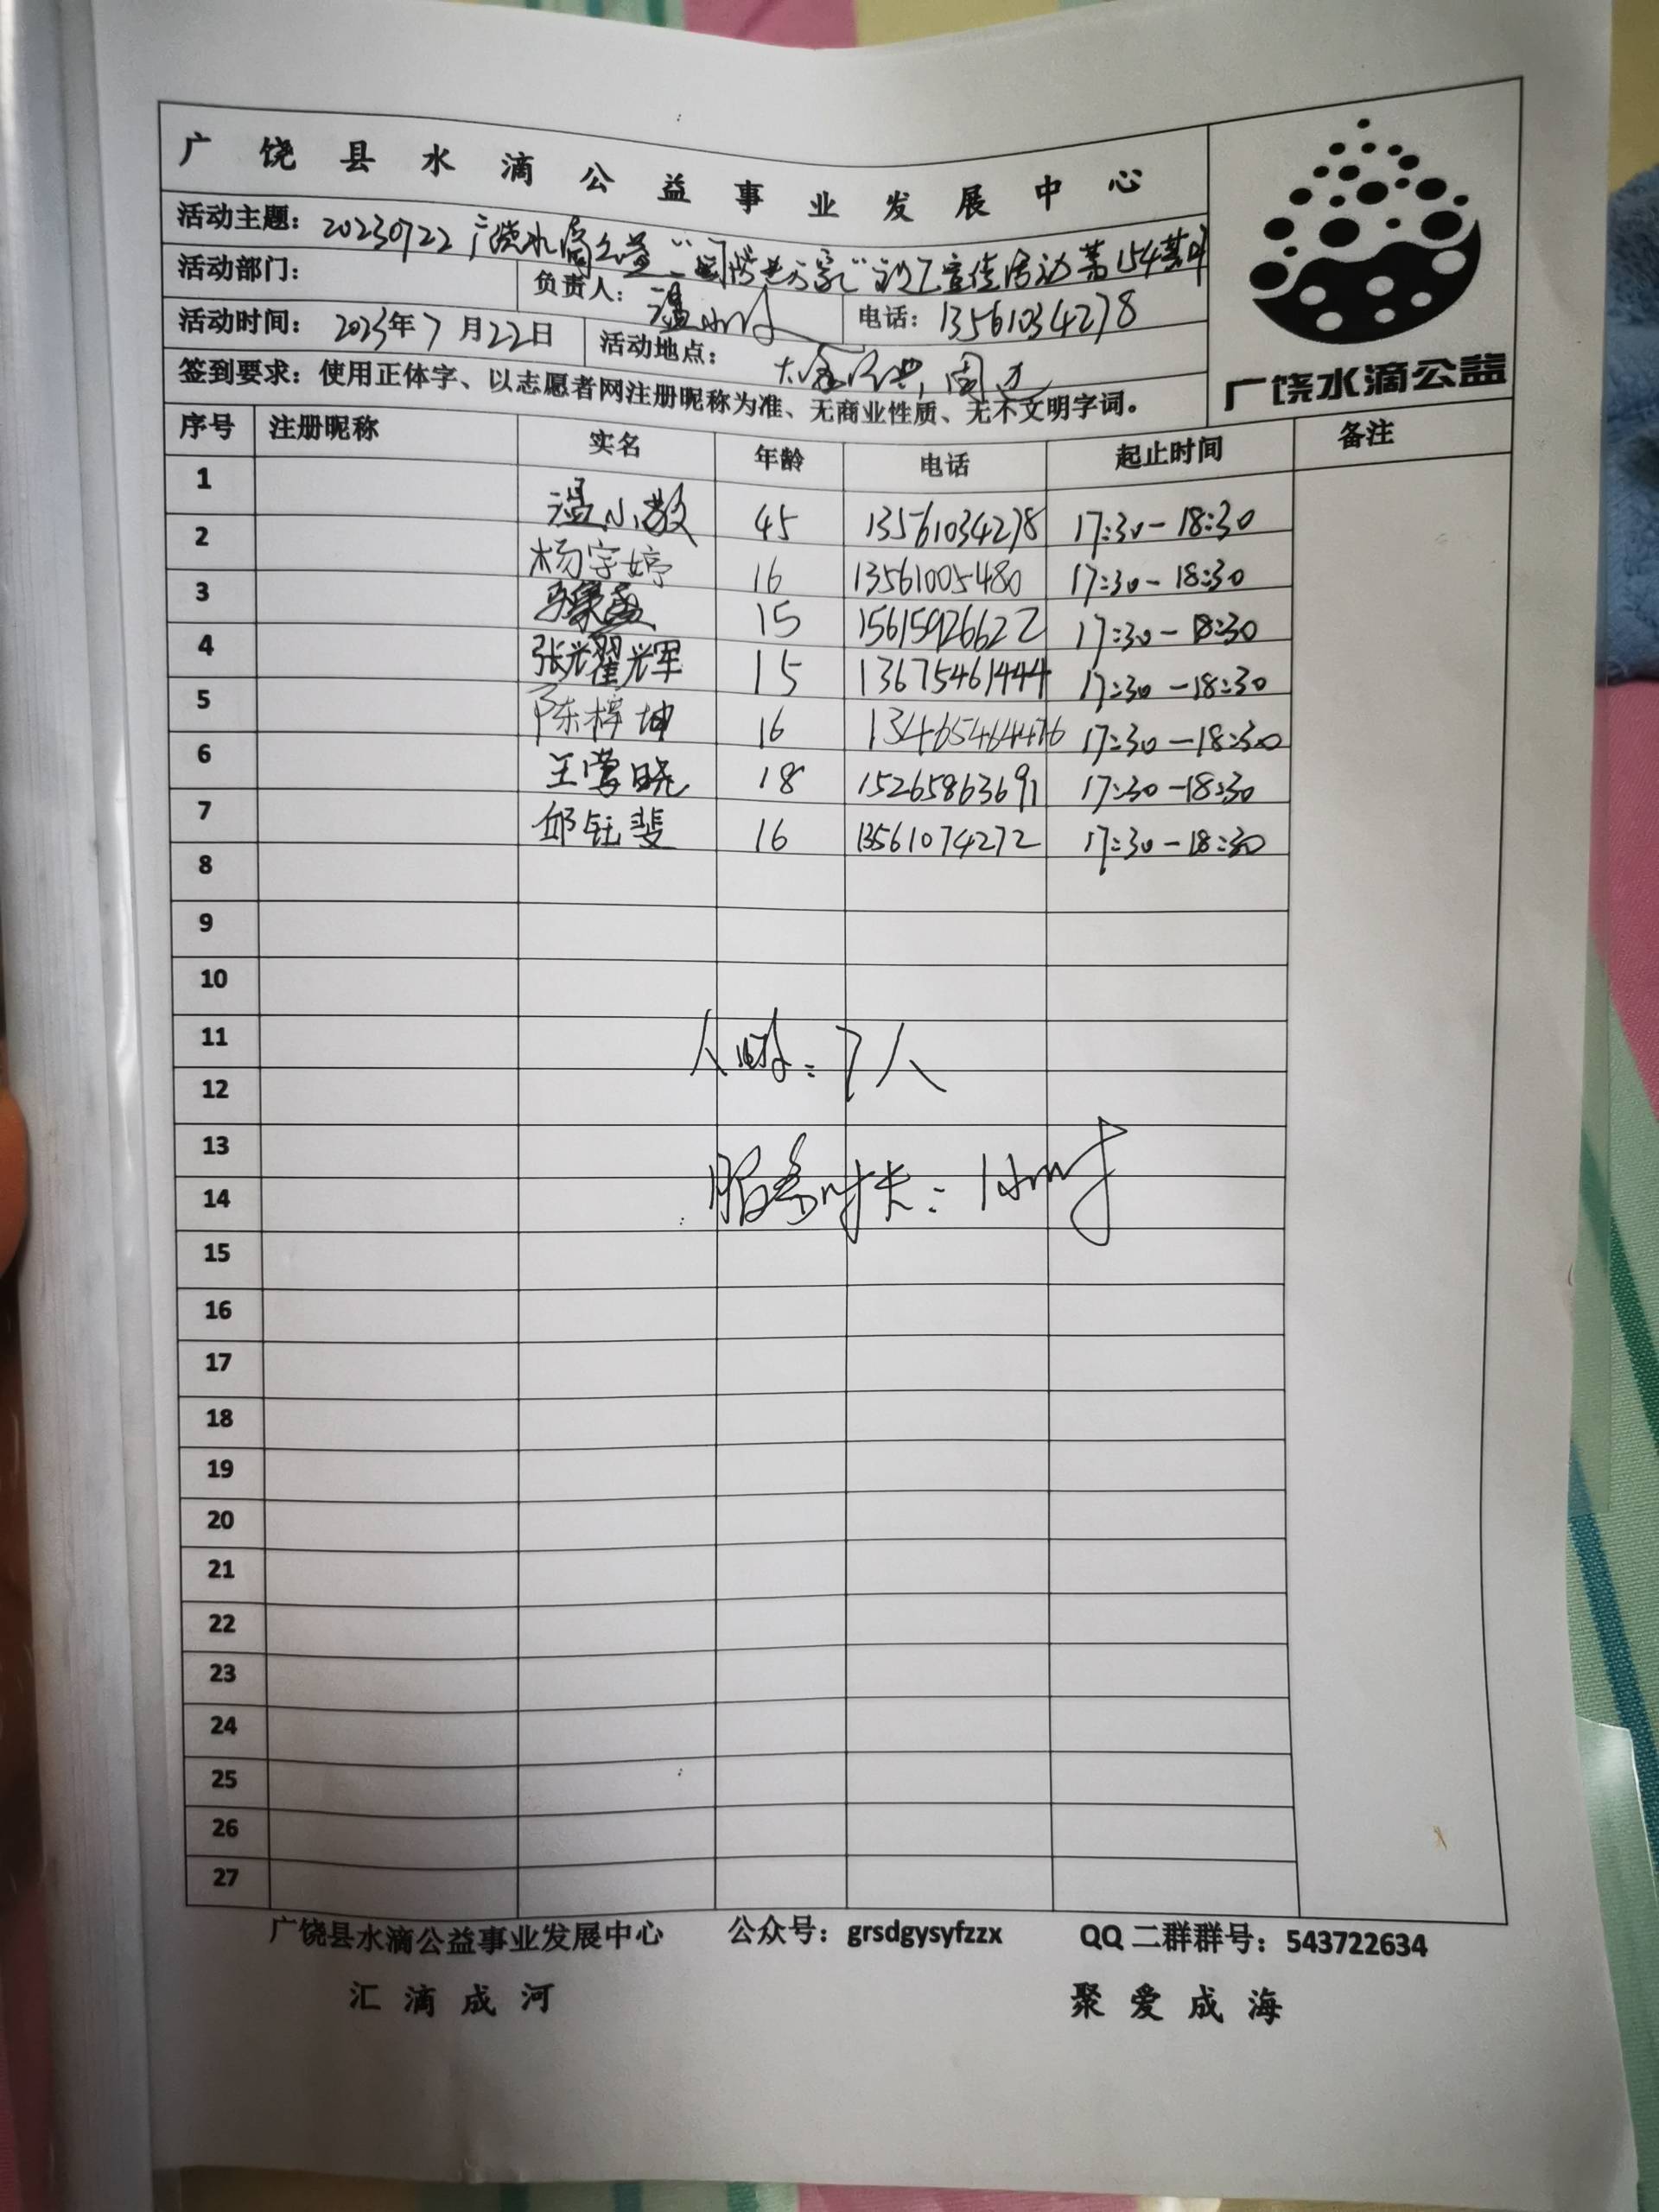 广饶县水滴公益事业发展中心
活动主题：20230722广饶水滴公益“”宣传活动第154期
活动部门：
负责人：温小 电话：13561034278
活动时间：2023年7月22日 活动地点：周边
签到要求：使用正体字、以志愿者网注册昵称为准、无商业性质、无不文明字词。
广饶水滴公益
序号 注册昵称 实名 年龄 电话 起止时间 备注
1 温小教 45 13561034278 17:30-18:30
2 杨宇婷 16 13561005480 17:30-18:30
3 15 15615926622 17:30-18:30
4 张耀光军 15 13675461444 17:30-18:30
5 陈梓坤 16 17:30-18:30
6 王莹晓 18 15265863691 17:30-18:30
7 邱钰斐 16 13561074272 17:30-18:30
8
9
10
11
人：7人
12
13
服务时长：1小时
14
15
16
17
18
19
20
21
22
23
24
25
26
27
广饶县水滴公益事业发展中心 公众号：grsdgysyfzzx QQ二群群号：543722634
汇滴成河 聚爱成海